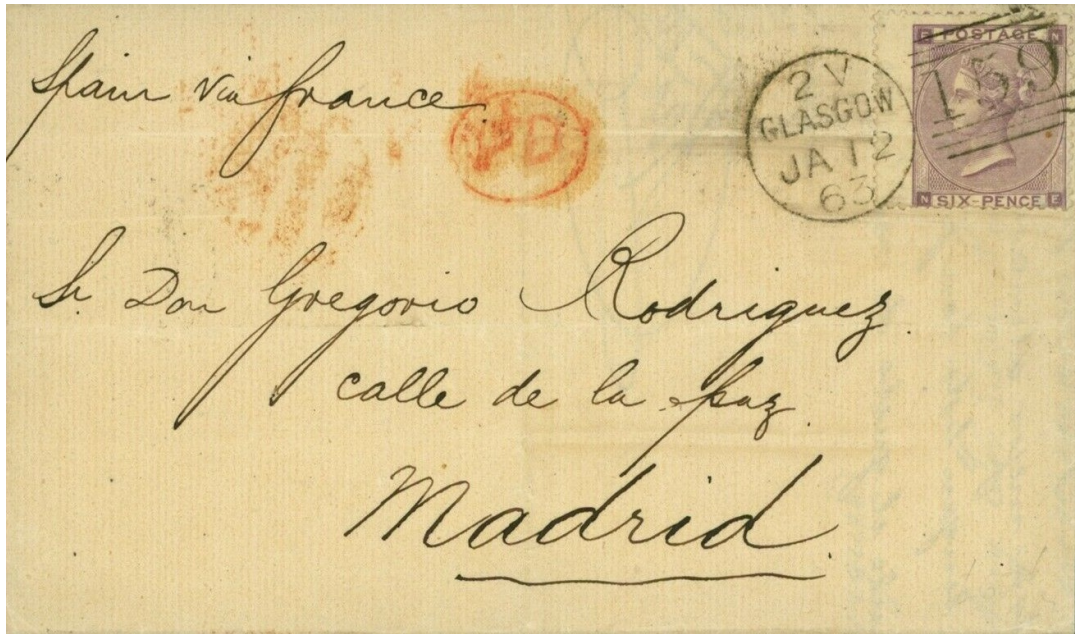 Spain via France.
PD
2 V
GLASGOW
JA 12
63
159
E POSTAGE N
N SIX-PENCE E
Sr. Don Gregorio Rodriguez.
calle de la Paz.
Madrid.